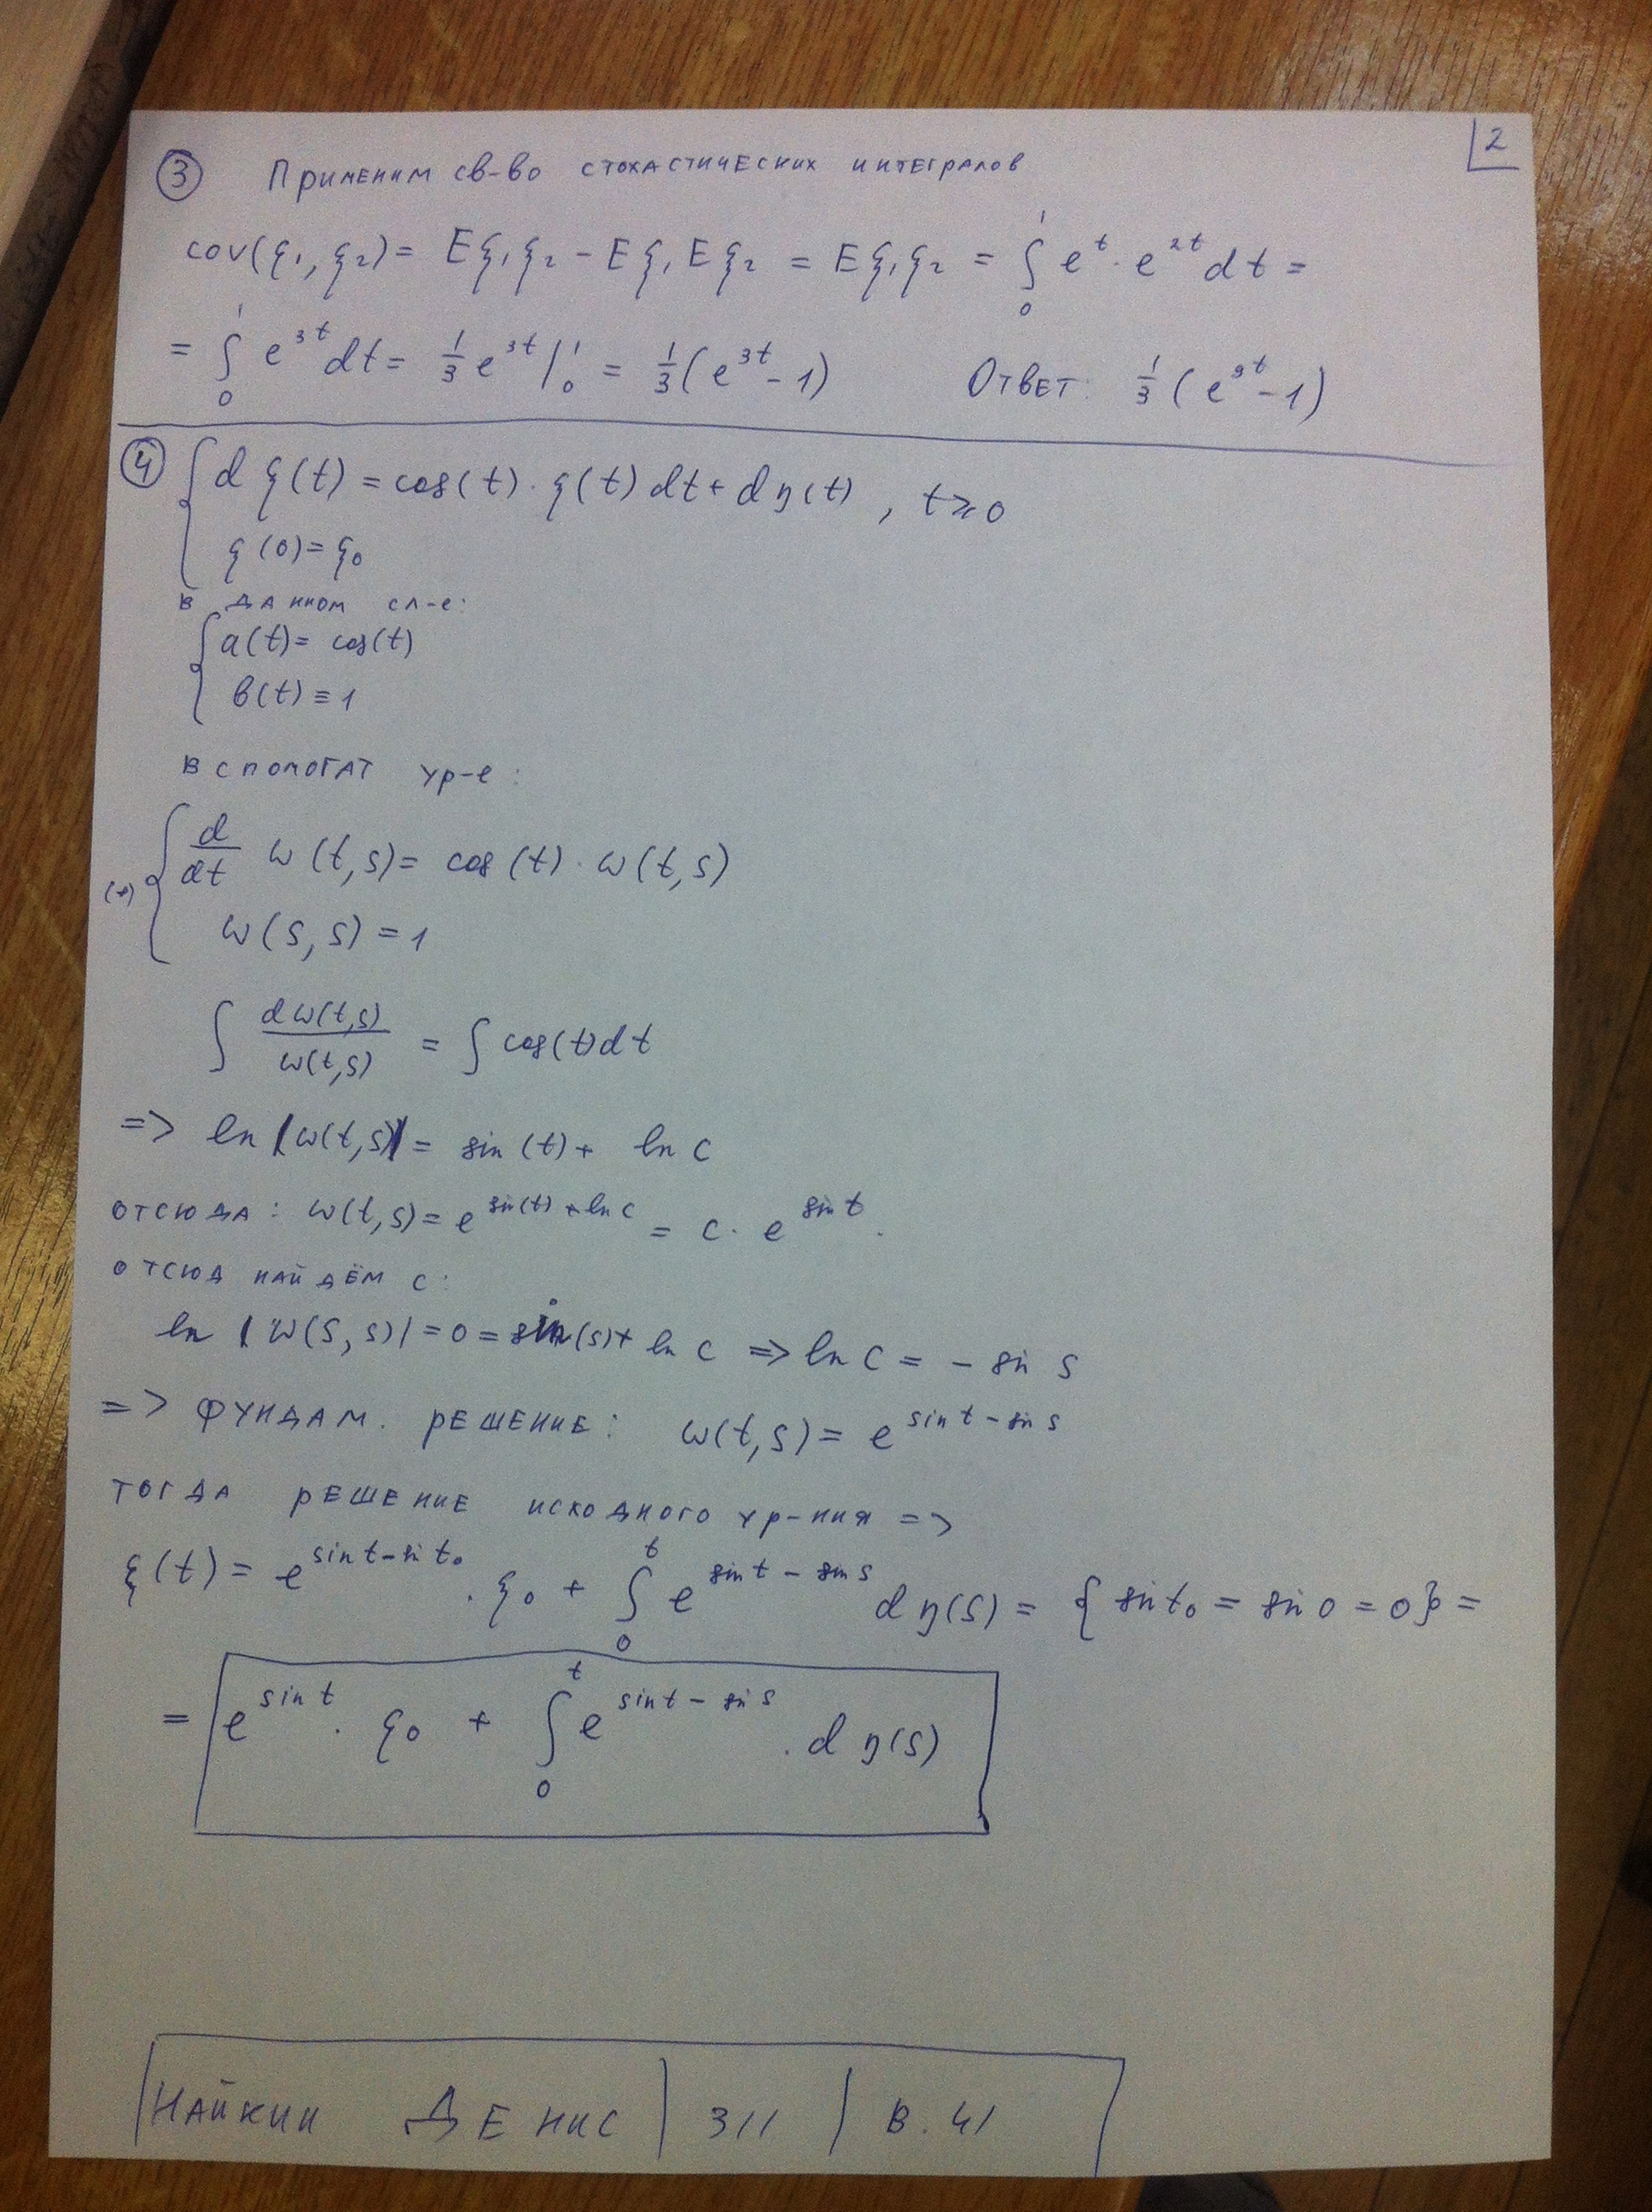 2
③ Применим св-во стохастических интегралов
cov(ξ₁, ξ₂) = Eξ₁ξ₂ − Eξ₁Eξ₂ = Eξ₁ξ₂ = ∫₀¹ e^t · e^{2t} dt =
= ∫₀¹ e^{3t} dt = 1/3 e^{3t} |₀¹ = 1/3 (e^{3t} − 1) Ответ: 1/3 (e^{3t} − 1)
④ { dξ(t) = cos(t) · ξ(t) dt + dη(t), t ≥ 0
ξ(0) = ξ₀
в данном сл-е:
{ a(t) = cos(t)
b(t) ≡ 1
вспомогат ур-е:
(*) { d/dt ω(t,s) = cos(t) · ω(t,s)
ω(s,s) = 1
∫ dω(t,s)/ω(t,s) = ∫ cos(t)dt
=> ln |ω(t,s)| = sin(t) + ln c
отсюда: ω(t,s) = e^{sin(t) + ln c} = c · e^{sin t}.
отсюд найдём c:
ln |ω(s,s)| = 0 = sin(s) + ln c => ln c = − sin s
=> фундам. решение: ω(t,s) = e^{sin t − sin s}
тогда решение исходного ур-ния =>
ξ(t) = e^{sin t − sin t₀} · ξ₀ + ∫₀^t e^{sin t − sin s} dη(s) = { sin t₀ = sin 0 = 0 } =
= e^{sin t} · ξ₀ + ∫₀^t e^{sin t − sin s} · dη(s)
Найкин Денис | 311 | в. 41